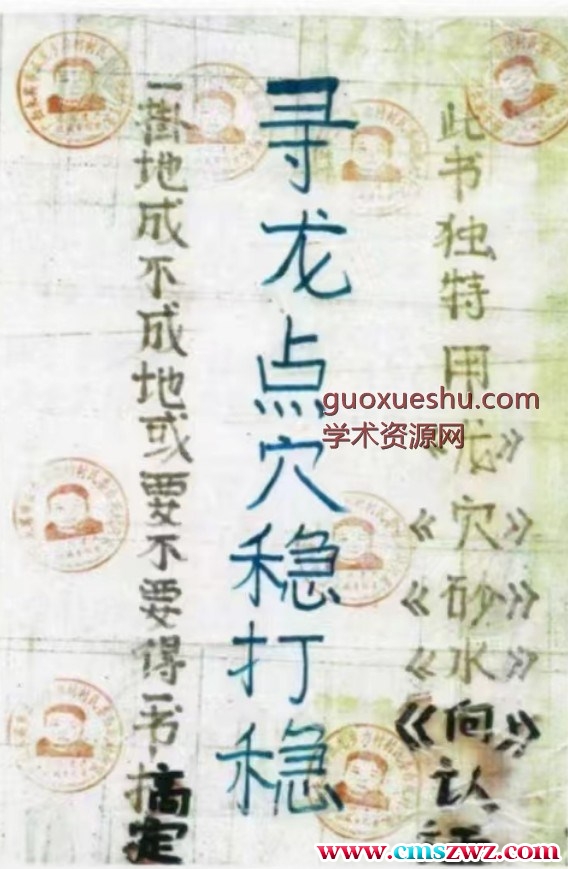 此书独特用《龙》《穴》《砂》《水》《向》认
寻龙点穴稳打稳
一掛地成不成地或要不要得一书搞定
guoxueshu.com
学术资源网
www.cmszwz.com